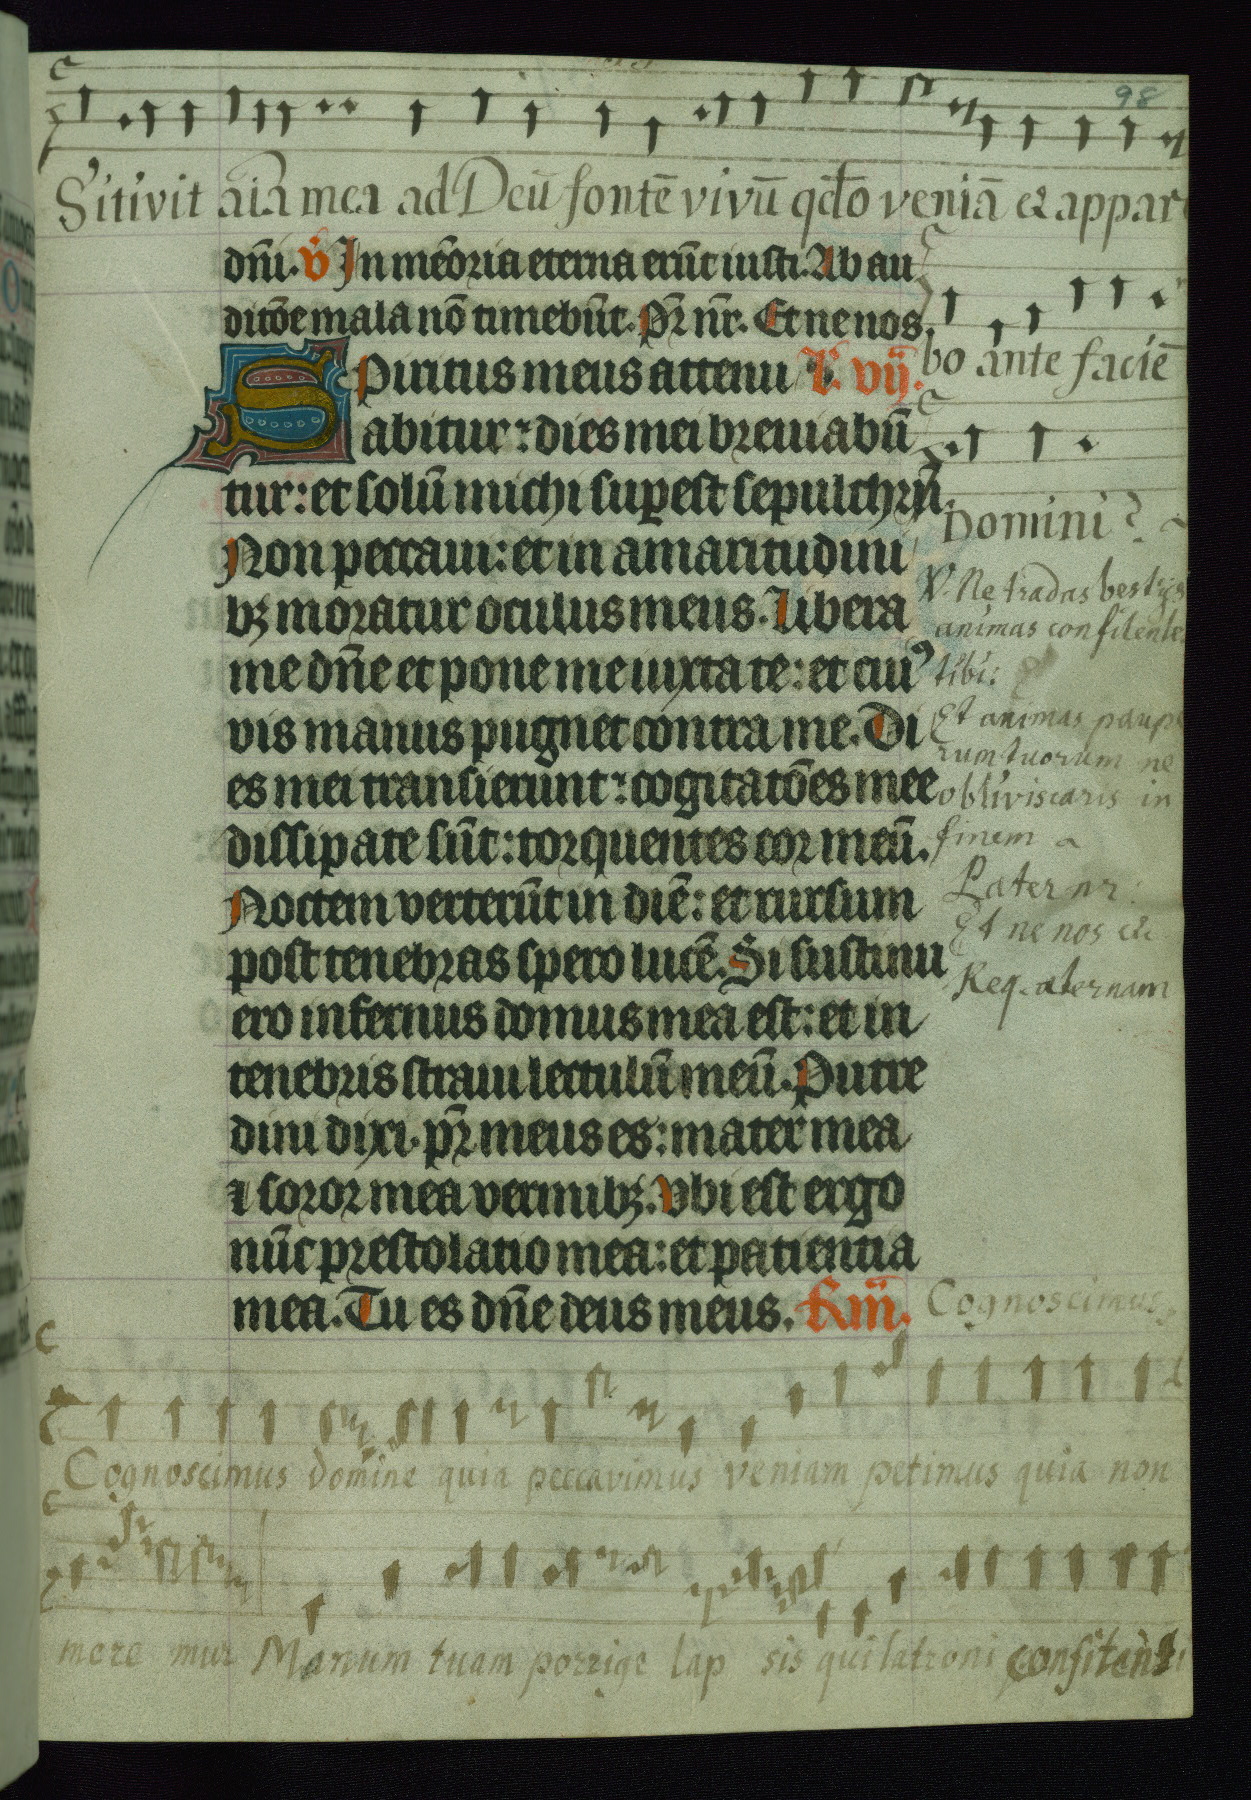 98
Sitivit aīā mea ad Deū fontē vivū qn̄do veniā & appar
dn̄i. v̄ In mēoria eterna erūt iusti. Ab au
ditōe mala nō timebūt. Pr̄ nr̄. Et ne nos.
bo ante faciē
Spiritus meus attenu L. vij.
abitur: dies mei breviabū
tur: et solū michi supest sepulchrū.
Domini?
Non peccavi: et in amaritudini
bꝫ moratur oculus meus. Libera
me dn̄e et pone me iuxta te: et cuiꝰ
vis manus pugnet contra me. Di
es mei transierunt: cogitatōes mee
dissipate sūt: torquentes cor meū.
Noctem verterūt in diē: et rursum
post tenebras spero lucē. Si sustinu
ero infernus domus mea est: et in
tenebris stravi lectulū meū. Putre
dini dixi. pr̄ meus es: mater mea
⁊ soror mea vermibꝫ. Vbi est ergo
nūc prestolatio mea: et patientia
mea. Tu es dn̄e deus meus.
℣. Ne tradas bestijs
animas confitente
tibi:
Et animas paupe
rum tuorum ne
obliviscaris in
finem
Pater nr:
Et ne nos &c
Req. æternam
Cognoscimus
Cognoscimus domine quia peccavimus veniam petimus quia non
mere mur Manum tuam porrige lap sis qui latroni confitenti